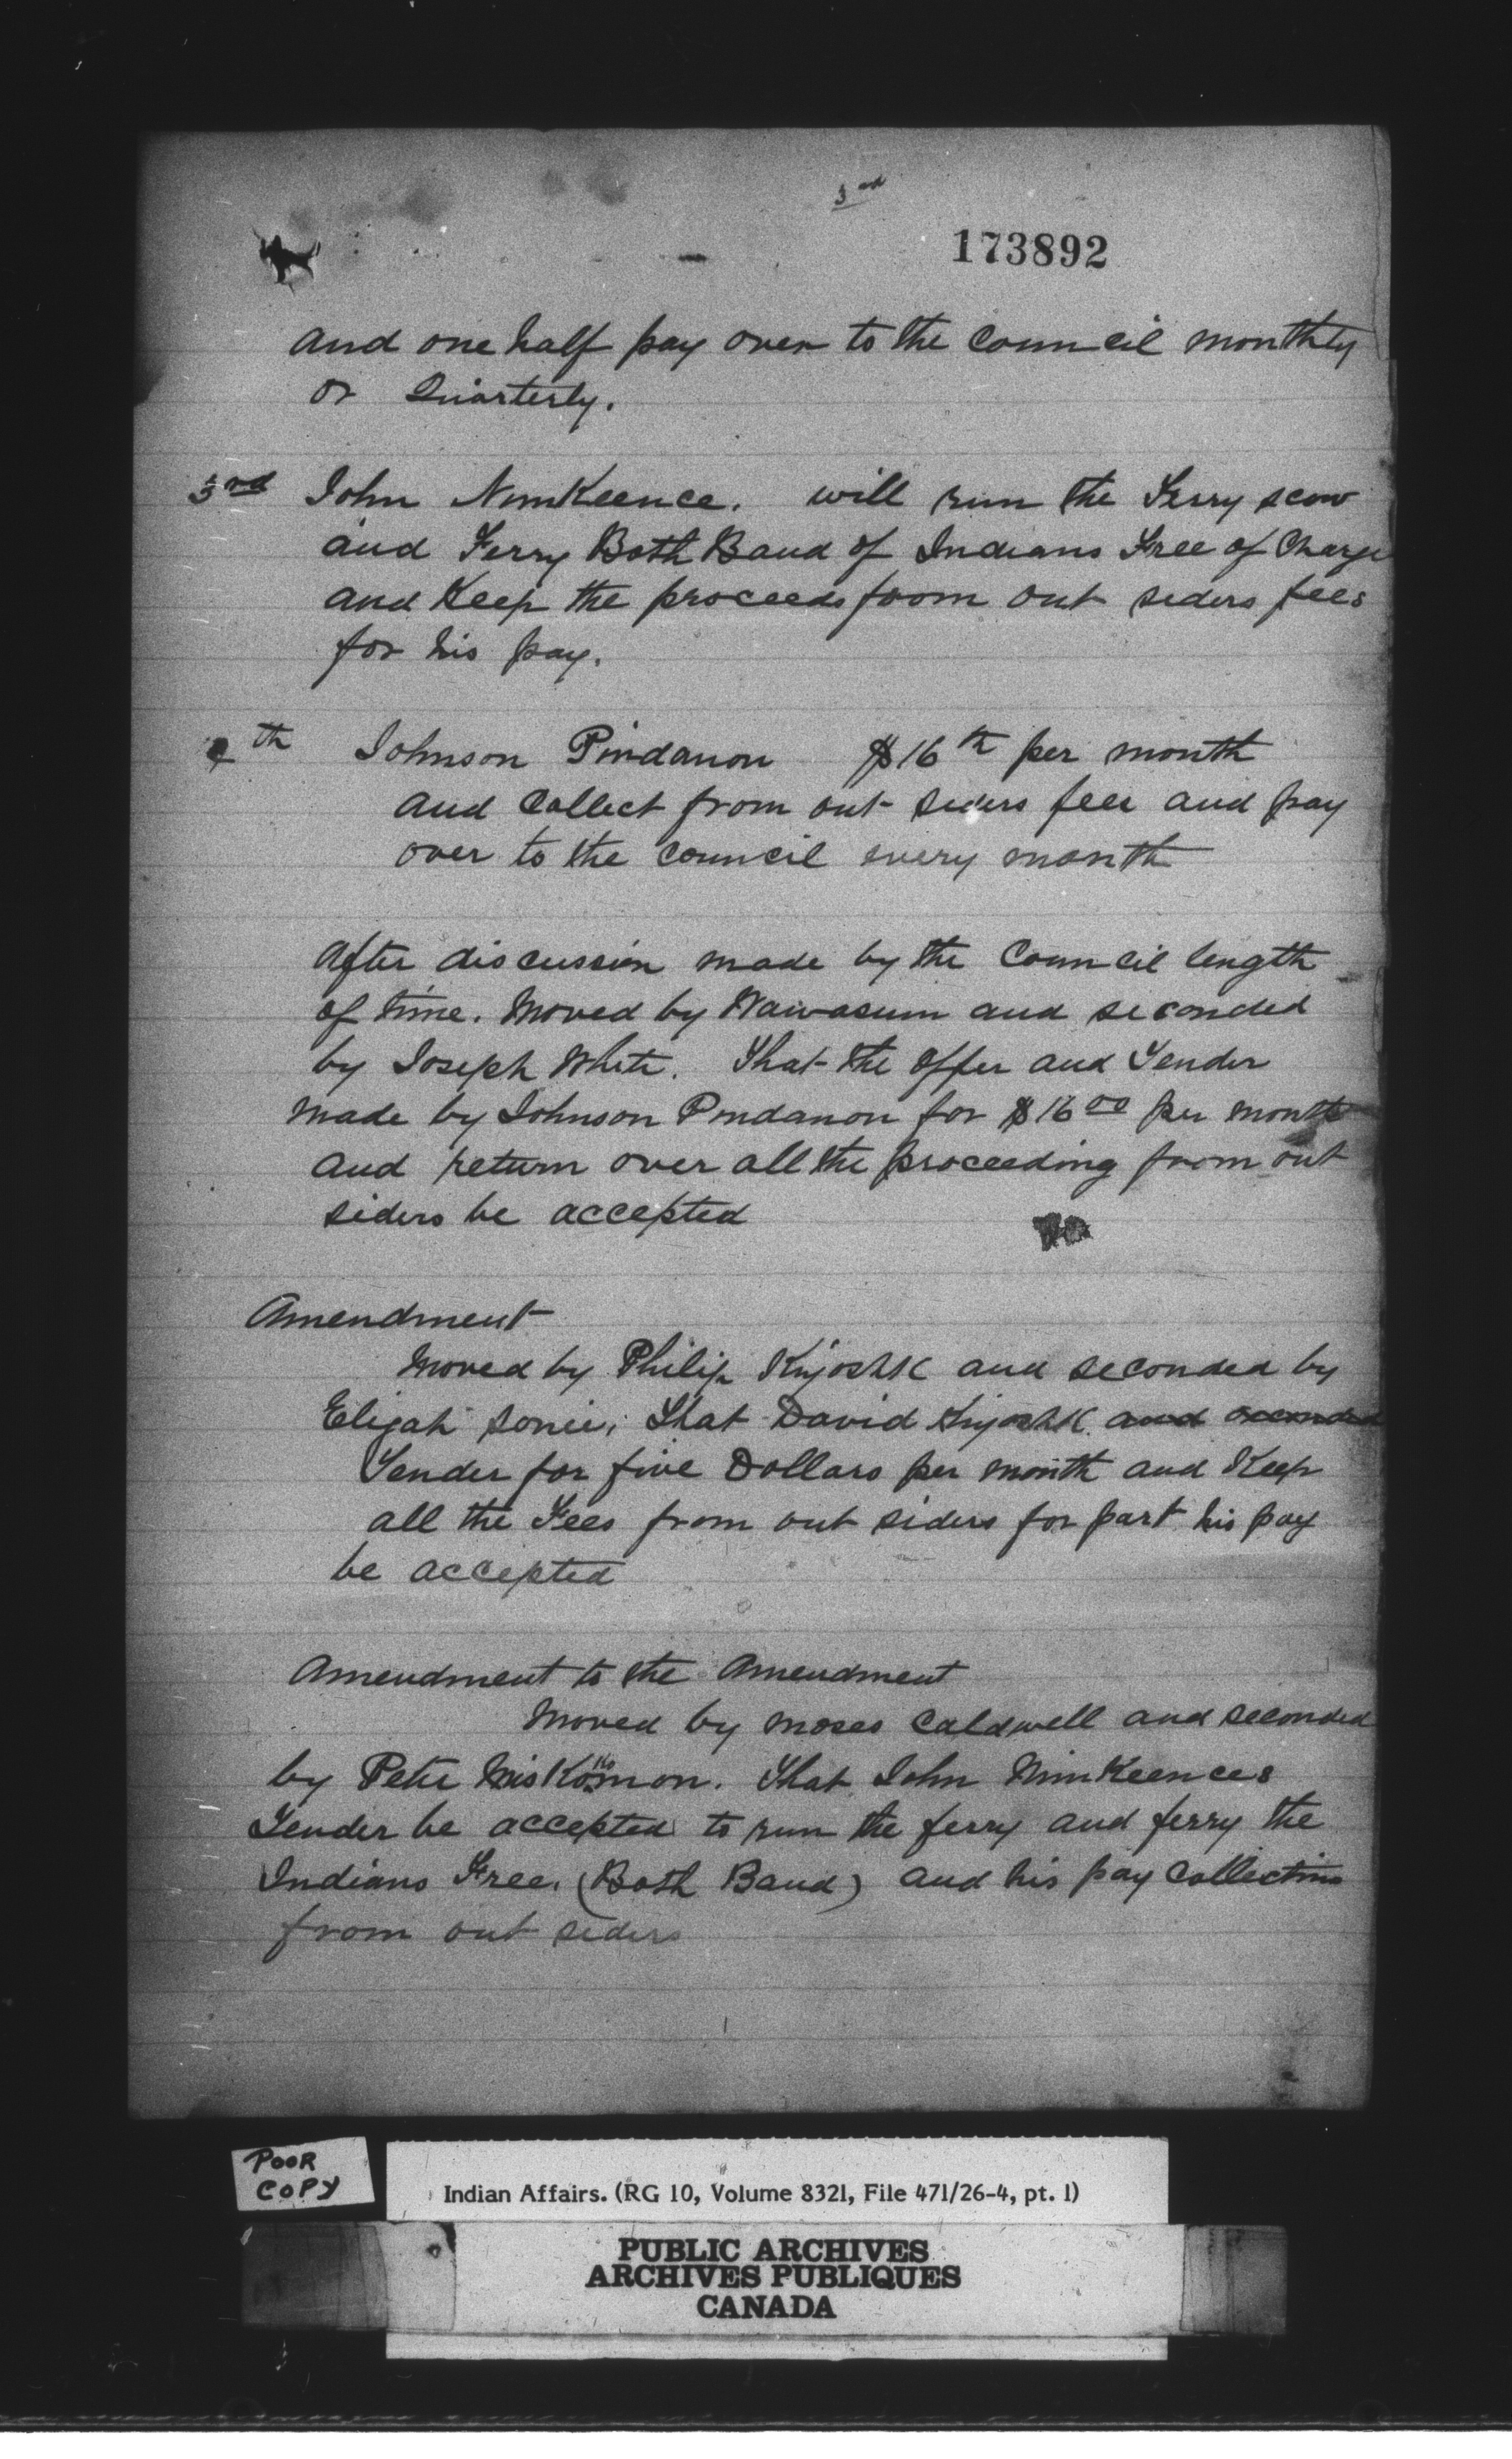 3rd
173892
and one half pay over to the Council monthly
or Quarterly.
3rd John Nimkeence. will run the Ferry scow
and Ferry Both Band of Indians Free of Charge
and Keep the proceeds from out siders fees
for his pay.
4th Johnson Pindanon $16th per month
and Collect from out siders fees and pay
over to the Council every month
After discussion made by the Council length
of time. Moved by Wawasum and seconded
by Joseph White. That the Offer and Tender
made by Johnson Pindanon for $16 00 per month
and return over all the proceeding from out
siders be accepted
Amendment
Moved by Philip Kiyoshk and seconded by
Elijah Soney, That David Kiyoshk and seconded
Tender for five Dollars per month and Keep
all the Fees from out siders for part his pay
be accepted
Amendment to the Amendment
Moved by Moses Caldwell and seconded
by Peter Miskokomon. That John Nimkeences
Tender be accepted to run the ferry and ferry the
Indians Free. (Both Band) and his pay Collections
from out siders
POOR
COPY
Indian Affairs. (RG 10, Volume 8321, File 471/26-4, pt. 1)
PUBLIC ARCHIVES
ARCHIVES PUBLIQUES
CANADA